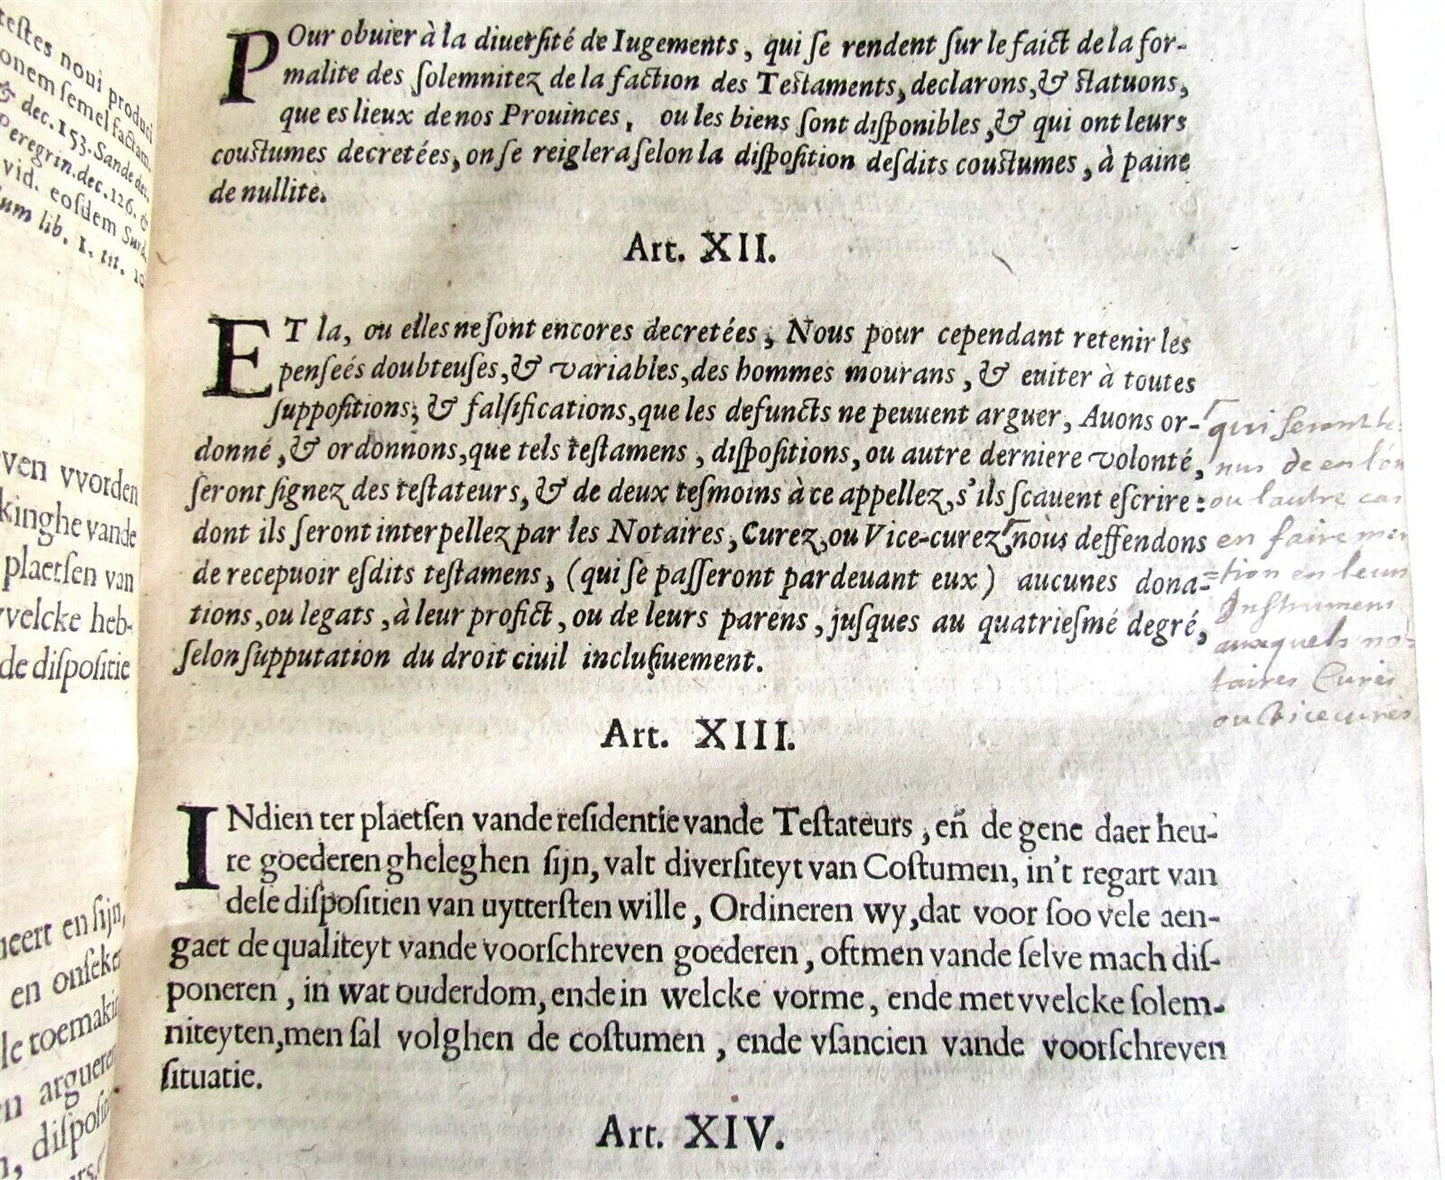 testes noui produci
onem semel factam.
& dec. 153. Sande dec.
Peregrin. dec. 126. &
vid. eosdem Surd.
lib. I. tit. 10
ven vvorden
kinghe vande
plaetsen van
vvelcke heb-
de dispositie
neert en sijn,
en onseker
le toemakin
en arguere
n, disposi
POur obuier à la diuersité de Iugements, qui se rendent sur le faict de la for-
malite des solemnitez de la faction des Testaments, declarons, & statuons,
que es lieux de nos Prouinces, ou les biens sont disponibles, & qui ont leurs
coustumes decretées, on se reiglera selon la disposition desdits coustumes, à paine
de nullite.
Art. XII.
ET la, ou elles ne sont encores decretées, Nous pour cependant retenir les
penseés doubteuses, & variables, des hommes mourans, & euiter à toutes
suppositions, & falsifications, que les defuncts ne peuuent arguer, Auons or-
donné, & ordonnons, que tels testamens, dispositions, ou autre derniere volonté,
seront signez des testateurs, & de deux tesmoins à ce appellez, s'ils scauent escrire:
dont ils seront interpellez par les Notaires, Curez, ou Vice-curez, nous deffendons
de recepuoir esdits testamens, (qui se passeront pardeuant eux) aucunes dona-
tions, ou legats, à leur profict, ou de leurs parens, jusques au quatriesmé degré,
selon supputation du droit ciuil inclusiuement.
qui seront te
nus de en l'ún
ou l'autre cas
en faire men
=tion en leurs
Instrumens
auxquels no=
taires Curés
ou vicecurés
Art. XIII.
INdien ter plaetsen vande residentie vande Testateurs, eñ de gene daer heu-
re goederen gheleghen sijn, valt diversiteyt van Costumen, in't regart van
dese dispositien van uyttersten wille, Ordineren wy, dat voor soo vele aen-
gaet de qualiteyt vande voorschreven goederen, oftmen vande selve mach dis-
poneren, in wat ouderdom, ende in welcke vorme, ende met vvelcke solem-
niteyten, men sal volghen de costumen, ende vsancien vande voorschreven
situatie.
Art. XIV.